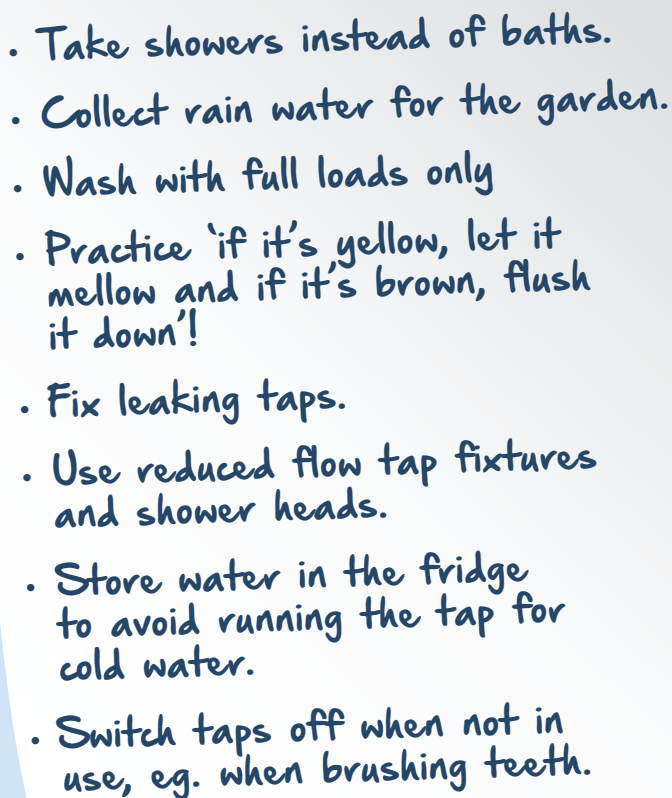 • Take showers instead of baths.
• Collect rain water for the garden.
• Wash with full loads only
• Practice ‘if it’s yellow, let it
mellow and if it’s brown, flush
it down’!
• Fix leaking taps.
• Use reduced flow tap fixtures
and shower heads.
• Store water in the fridge
to avoid running the tap for
cold water.
• Switch taps off when not in
use, eg. when brushing teeth.